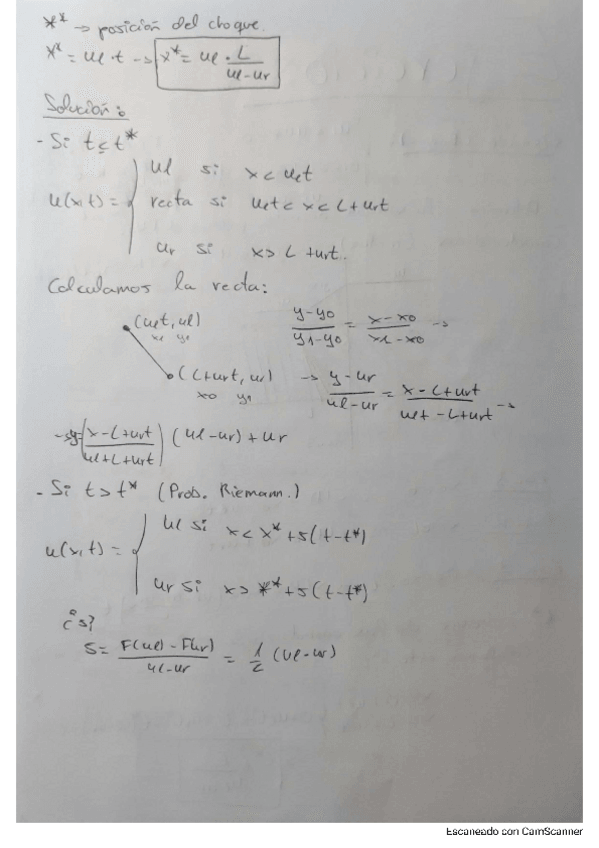 x* → posición del choque.
x* = ul · t → x* = ul · L / (ul - ur)
Solución:
- Si t ≤ t*
u(x,t) = { ul si x < ult
recta si ult < x < L + urt
ur si x > L + urt.
Calculamos la recta:
(ult, ul)
x1 y1
(L + urt, ur)
x0 y1
(y - y0) / (y1 - y0) = (x - x0) / (x1 - x0) →
→ (y - ur) / (ul - ur) = (x - L + urt) / (ult - L + urt) →
→ y = ((x - L + urt) / (ul + L + urt)) (ul - ur) + ur
- Si t > t* (Prob. Riemann.)
u(x,t) = { ul si x < x* + s(t - t*)
ur si x > x* + s(t - t*)
¿s?
s = (F(ul) - F(ur)) / (ul - ur) = 1/2 (ul - ur)
Escaneado con CamScanner